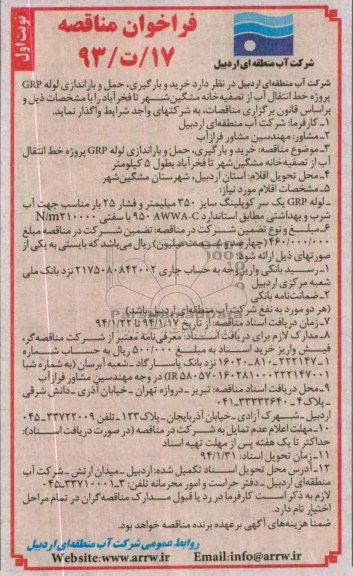 نوبت اول
فراخوان مناقصه
۹۳/ت/۱۷
شرکت آب منطقه ای اردبیل
شرکت آب منطقه‌ای اردبیل در نظر دارد خرید و بارگیری، حمل و باراندازی لوله GRP
پروژه خط انتقال آب از تصفیه‌خانه مشگین‌شهر تا فخرآباد را با مشخصات ذیل و
براساس قانون برگزاری مناقصات، به شرکتهای واجد شرایط واگذار نماید.
۱-کارفرما: شرکت آب منطقه‌ای اردبیل
۲-مشاور: مهندسین مشاور فرازآب
۳-موضوع مناقصه: خرید و بارگیری، حمل و باراندازی لوله GRP پروژه خط انتقال
آب از تصفیه‌خانه مشگین‌شهر تا فخرآباد بطول ۵ کیلومتر
۴-محل تحویل اقلام: استان اردبیل، شهرستان مشگین‌شهر
۵-مشخصات اقلام مورد نیاز:
-لوله GRP یک سر کوپلینگ سایز ۳۵۰ میلیمتر و فشار ۲۵ بار مناسب جهت آب
شرب و بهداشتی مطابق استاندارد AWWA-C ۹۵۰ با سفتی N/m۲۱۰۰۰۰
۶-مبلغ و نوع تضمین شرکت در مناقصه: تضمین شرکت در مناقصه مبلغ
۴۶۰/۰۰۰/۰۰۰ (چهارصدو شصت میلیون) ریال می‌باشد که بایستی به یکی از
صورتهای ذیل ارائه شود:
۱- رسید بانکی واریز وجه به حساب جاری ۲۱۷۵۰۸۰۸۴۲۰۰۲ نزد بانک ملی
شعبه مرکزی اردبیل
۲-ضمانت‌نامه بانکی
(هر دو مورد به نفع شرکت آب منطقه‌ای اردبیل باشد)
۷-زمان دریافت اسناد مناقصه: از تاریخ ۹۴/۱/۱۷ تا ۹۴/۱/۲۲
۸-مدارک لازم برای دریافت اسناد: معرفی‌نامه معتبر از شرکت مناقصه‌گر،
فیش واریز خرید اسناد به مبلغ ۵۰۰/۰۰۰ ریال به حساب شماره
نزد بانک پاسارگاد-شعبه آبرسان (به شماره شبا
در وجه مهندسین مشاور فراز آب
۹-محل دریافت اسناد مناقصه: تبریز - دروازه تهران - خیابان آذری - دانش شرقی
- پلاک۴ - ۰۴۱-۳۳۳۳۲۶۴۰
اردبیل -شهرک آزادی - خیابان آذربایجان - پلاک۱۲۳ - تلفن ۳۳۷۲۲۰۰۹-۰۴۵
۱۰-مهلت اعلام عدم تمایل به شرکت در مناقصه (در صورت دریافت اسناد):
حداکثر تا یک هفته پس از مهلت تهیه اسناد
۱۱-زمان تحویل اسناد: ۹۴/۱/۳۱
۱۲-آدرس محل تحویل اسناد تکمیل شده: اردبیل - میدان ارتش - شرکت آب
منطقه‌ای اردبیل - دفتر حراست و امور محرمانه تلفن: ۳-۳۳۷۱۰۰۰۱-۰۴۵
لازم به ذکر است کارفرما در رد یا قبول مدارک مناقصه‌گران در تمام مراحل
اختیار تام دارد.
ضمنا هزینه‌های آگهی برعهده برنده مناقصه خواهد بود.
روابط عمومی شرکت آب منطقه‌ای اردبیل
Website:www.arrw.ir Email:info@arrw.ir